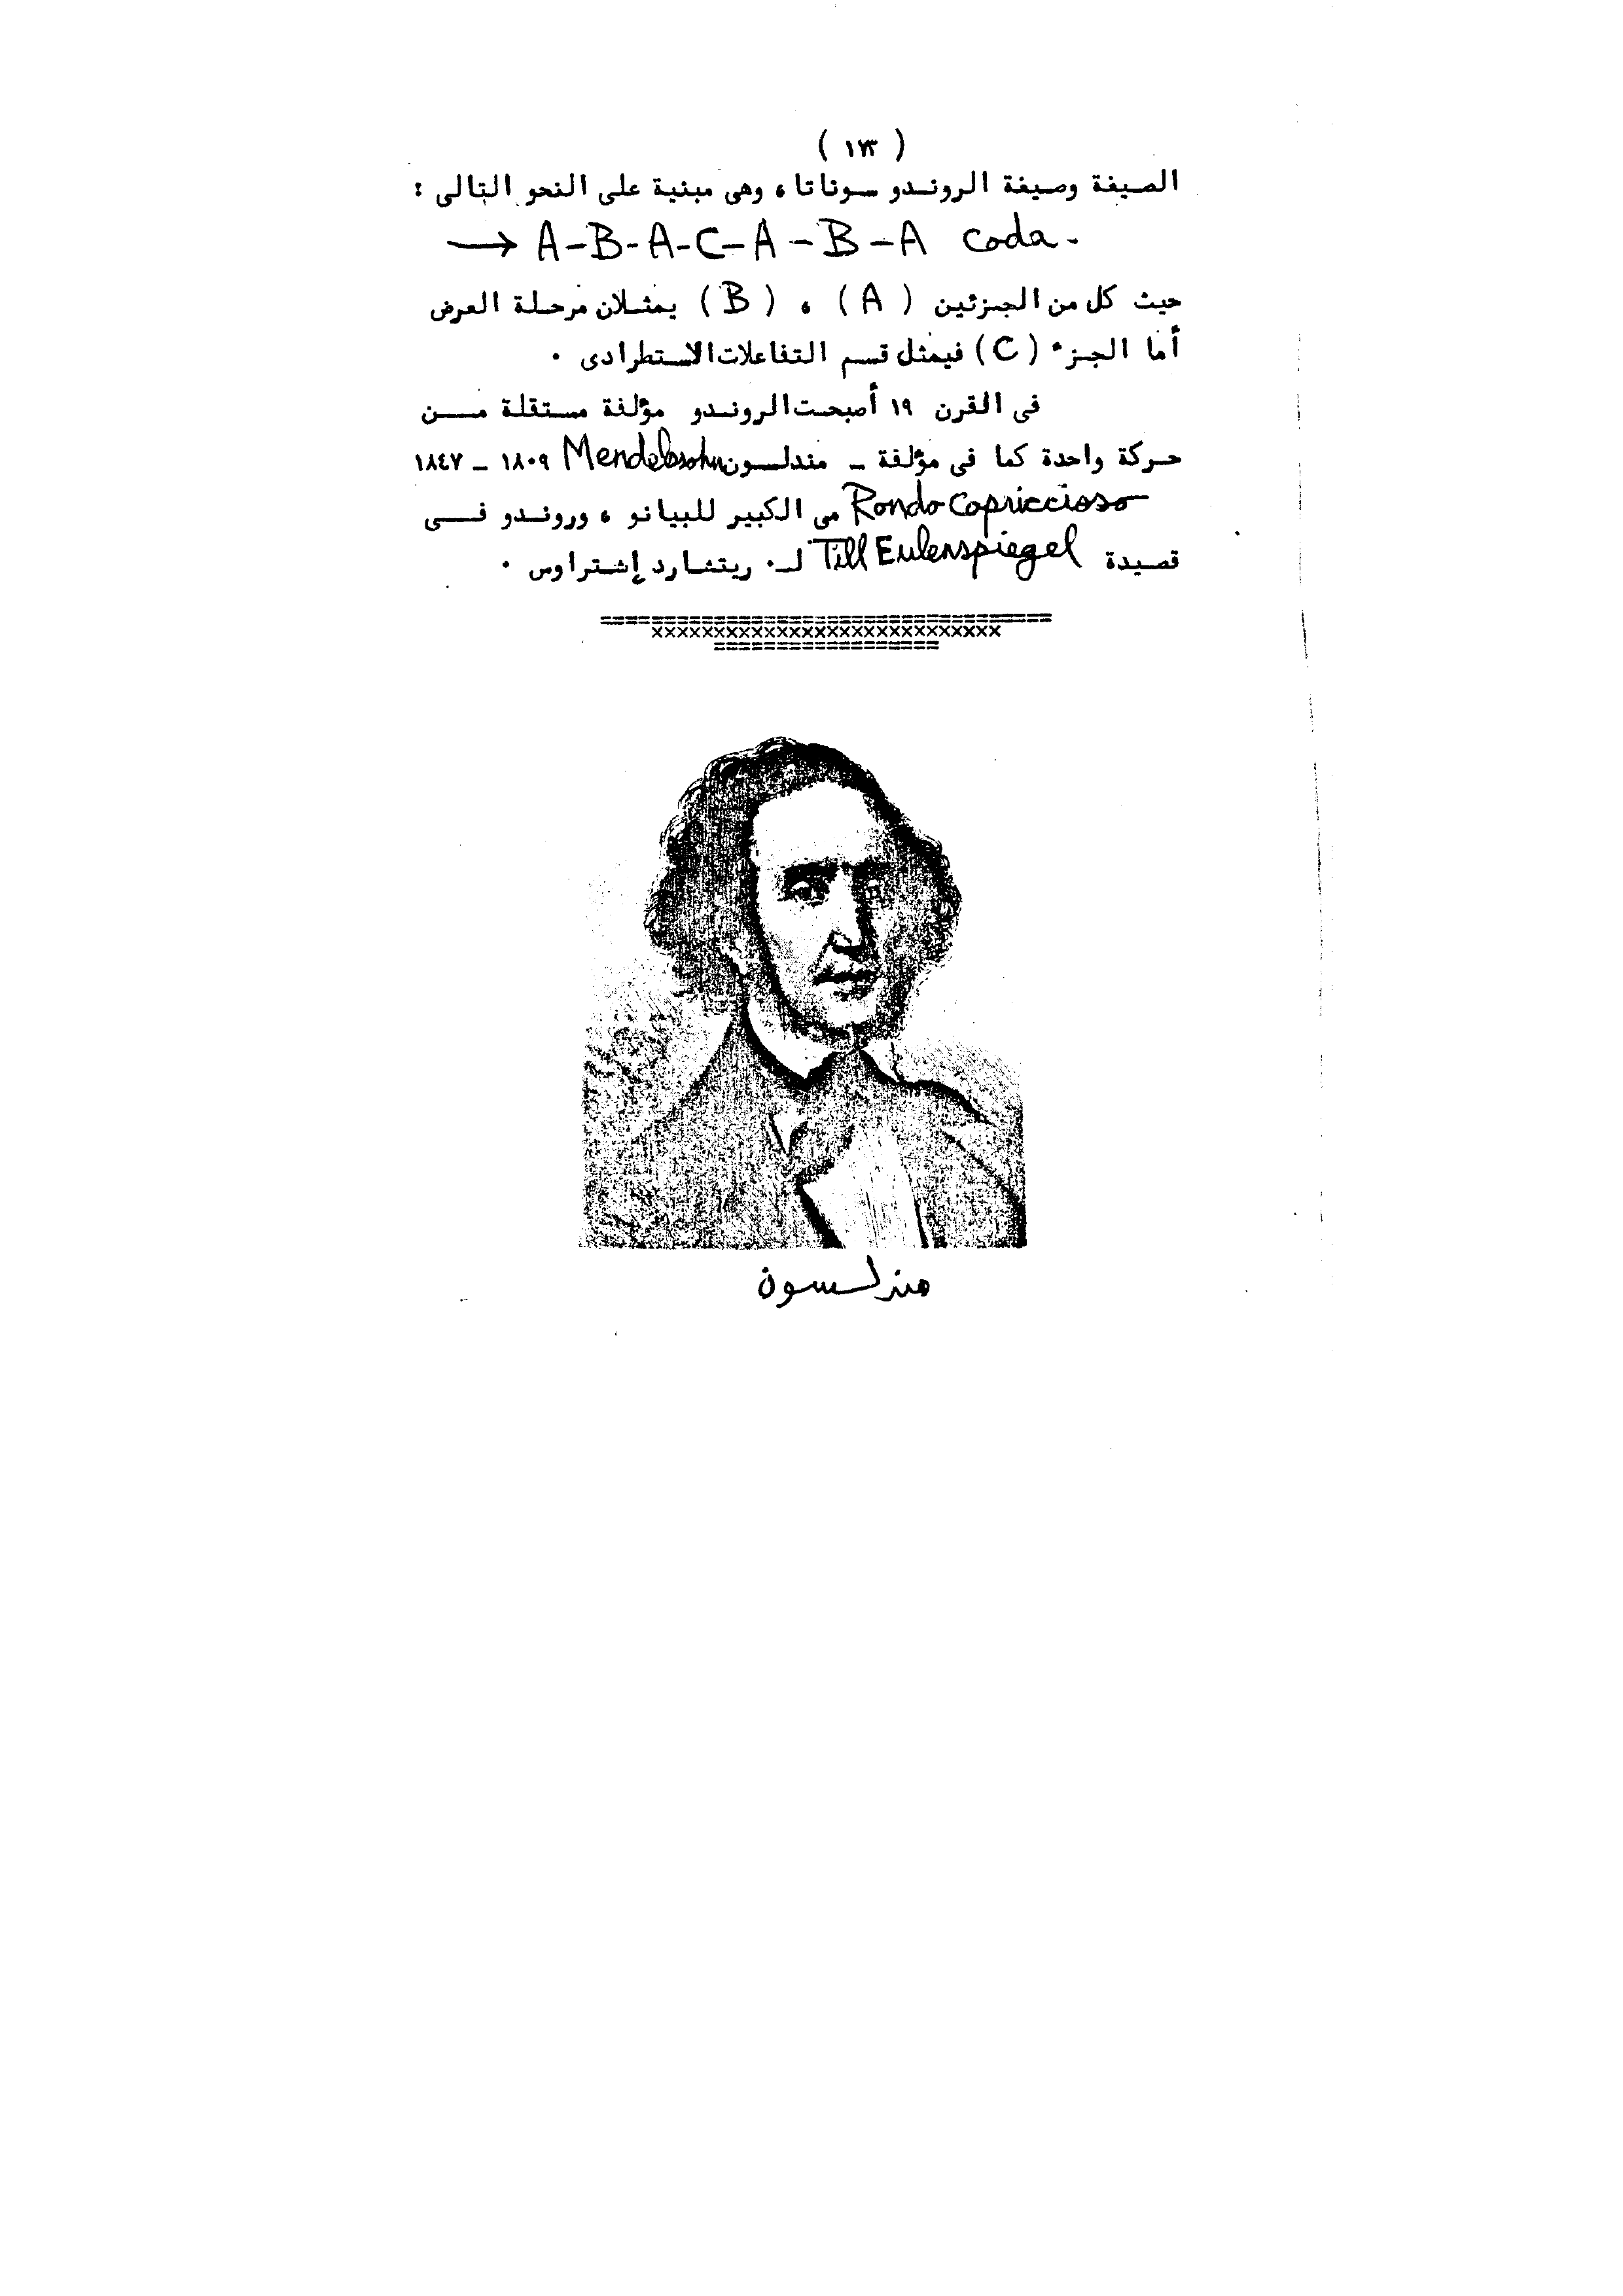 ( ١٧٣ )
الصيغة وصيغة الروندو سوناتا ، وهى مبنية على النحو التالى :
→ A-B-A-C-A-B-A coda.
حيث كل من الجزئين ( A ) ، ( B ) يمثلان مرحلة العرض
أما الجزء ( C ) فيمثل قسم التفاعلات الاستطرادى .
فى القرن ١٩ أصبحت الروندو مؤلفة مستقلة من
حركة واحدة كما فى مؤلفة - مندلسون Mendelssohn ١٨٠٩ - ١٨٤٧
Rondo Capriccioso مى الكبير للبيانو ، وروندو فى
قصيدة Till Eulenspiegel لـ . ريتشارد إشتراوس .
مندلسون